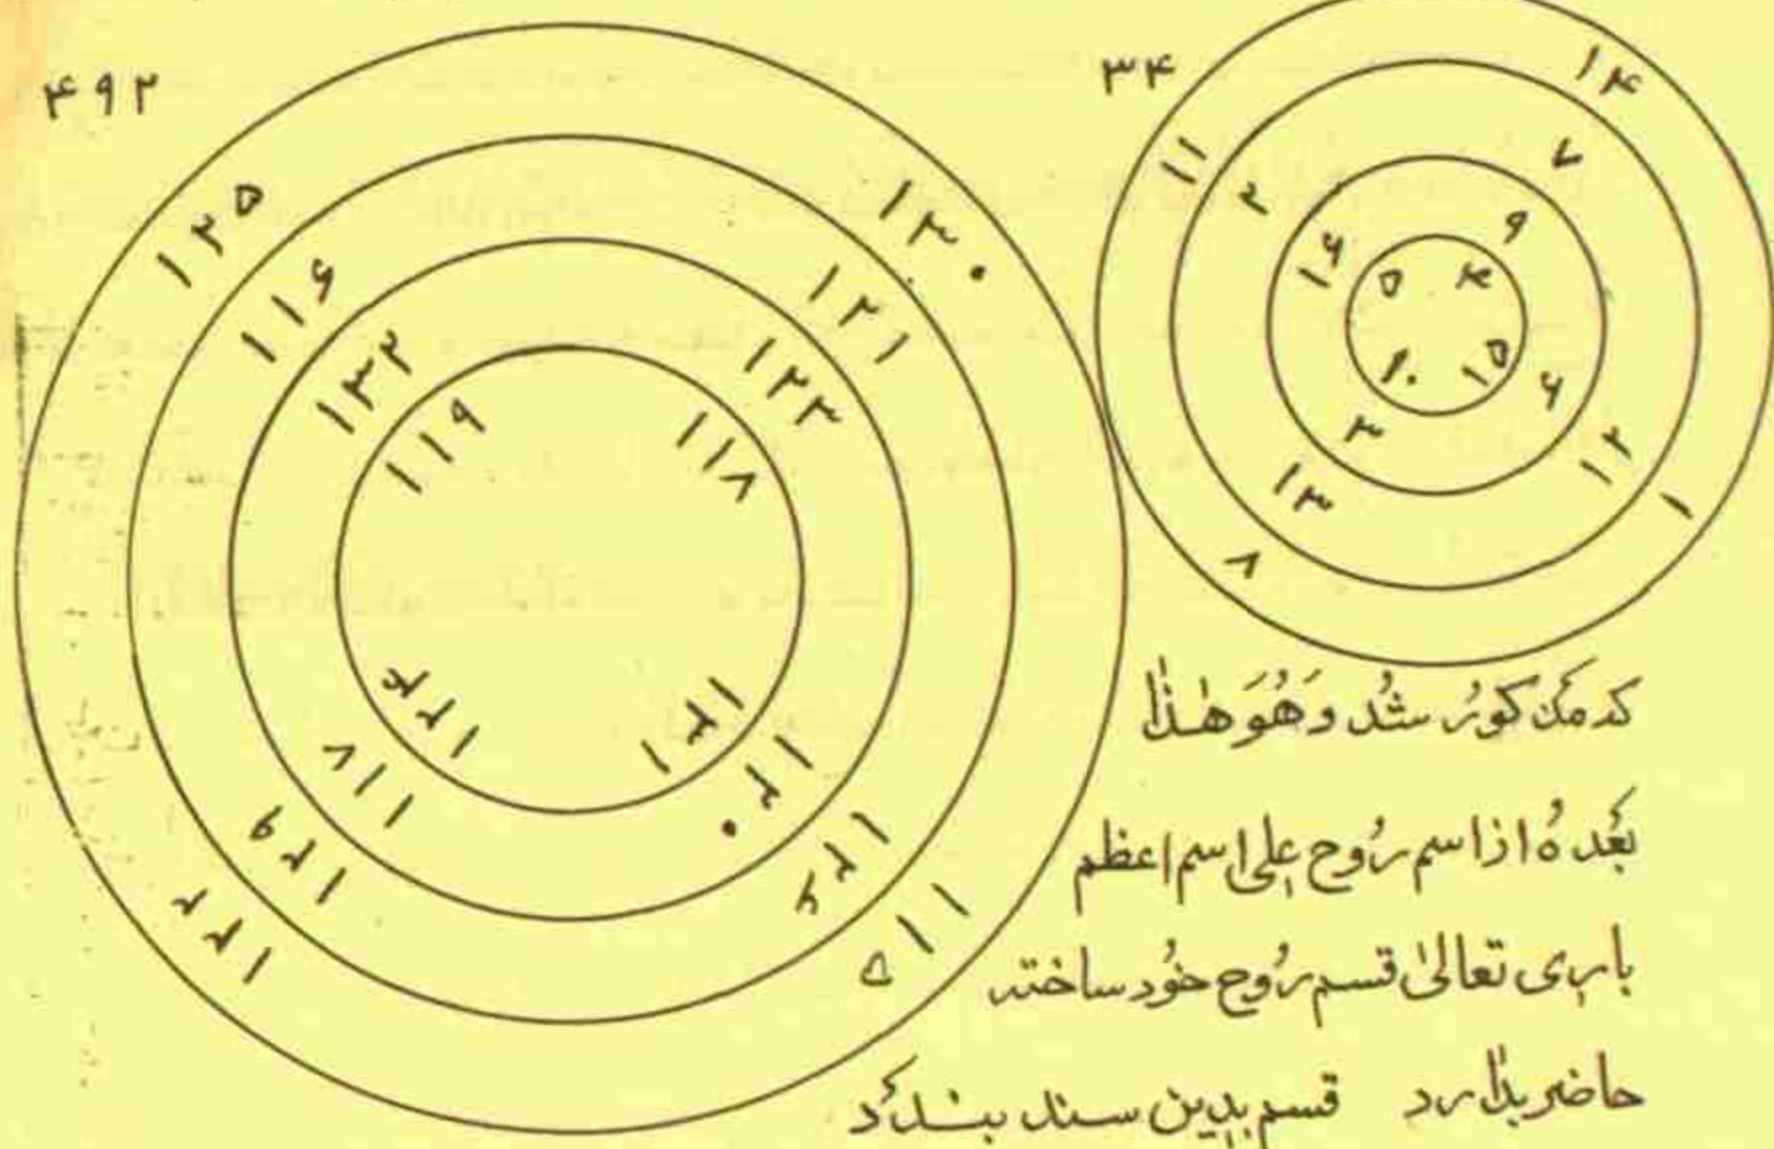 ۴۹۲
۱۲۵ ۱۳۰
۱۱۶ ۱۲۱
۱۳۲ ۱۲۳
۱۱۹ ۱۱۸
۱۲۴ ۱۳۱
۱۱۷ ۱۲۰
۱۲۹ ۱۲۶
۱۲۲ ۱۱۵
۳۴
۱۱ ۱۴
۲ ۷
۱۶ ۹
۵ ۴
۱۰ ۱۵
۳ ۶
۱۳ ۱۲
۸ ۱
که مذکور شُد وَهُوَ هٰذا
بَعْدهُ از اسم رُوح علی اسم اعظم
باری تعالیٰ قسم رُوح خُود ساخته
حاضر بدارد قسم بدین سند ببندد